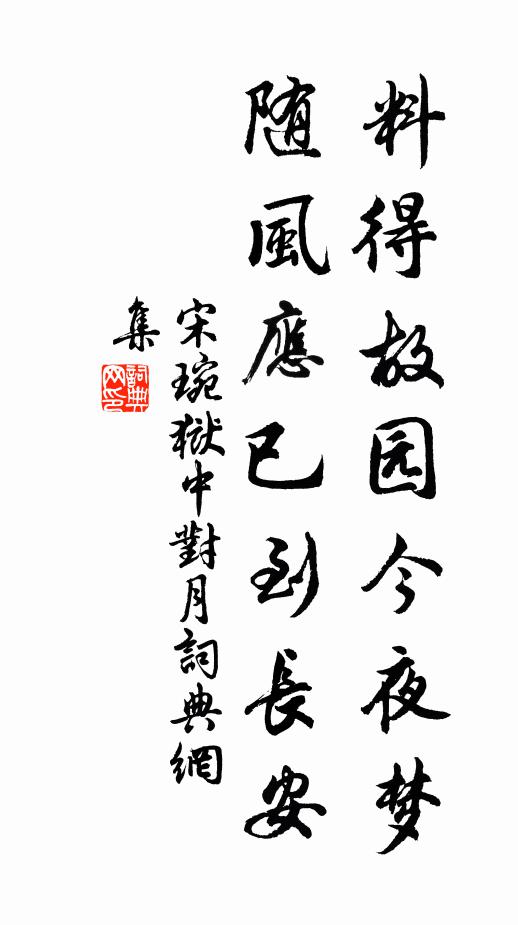 料得故园今夜梦
随風應已到長安
宋琬獄中對月詞典網
集
詞典網印